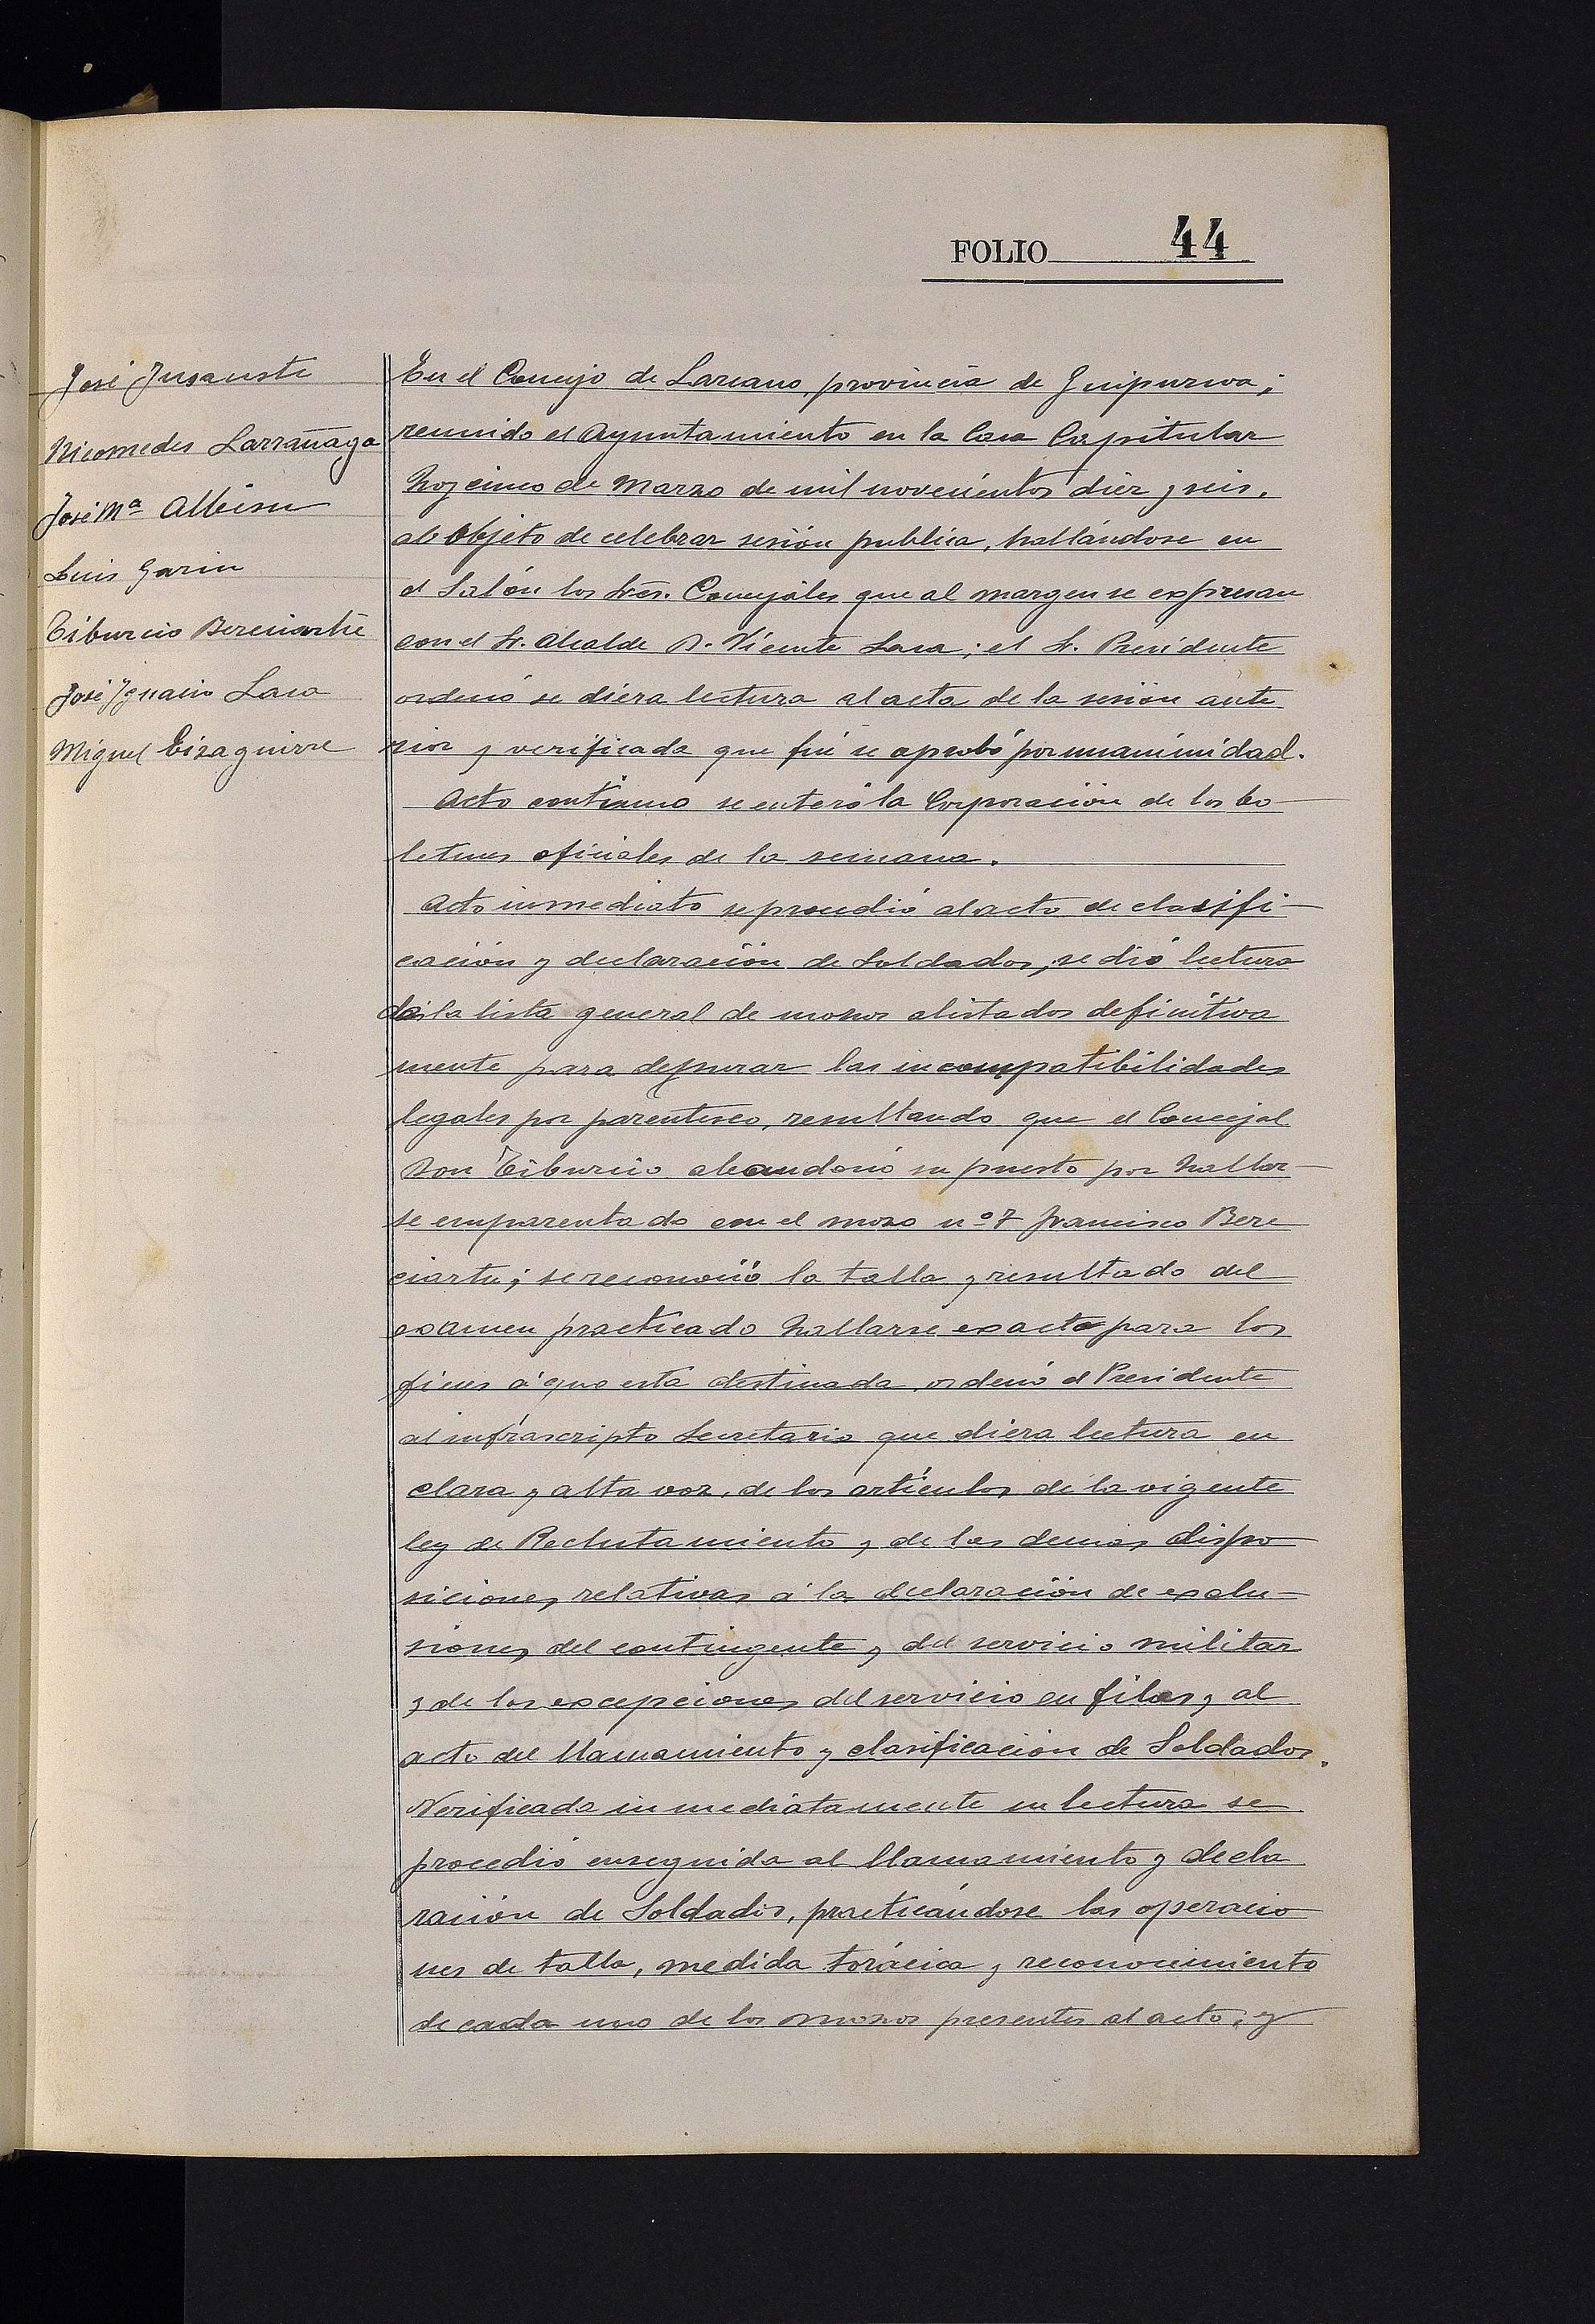 FOLIO 44
José Insausti
Nicomedes Larrañaga
José Mª Albisu
Luis Garin
Tiburcio Bereciartu
José Ignacio Lasa
Miguel Eizaguirre
En el Concejo de Lazcano, provincia de Guipuzcoa;
reunido el Ayuntamiento en la Casa Capitular
hoy cinco de Marzo de mil novecientos diez y seis.
al objeto de celebrar sesión publica, hallándose en
el Salón los Sres. Concejáles que al margen se expresan
con el Sr. Alcalde D. Vicente Lasa; el Sr. Presidente
ordenó se diera lectura al acta de la sesión ante
rior y verificada que fué se aprobó por unanimidad.
Acto continuo se enteró la Corporación de los bo-
letines oficiales de la semana.
Acto inmediato se procedió al acto de clasifi-
cación y declaración de Soldados, se dió lectura
de la lista general de mozos alistados definitiva
mente para depurar las incompatibilidades
legales por parentesco, resultando que el Concejal
Don Tiburcio abandonó su puesto por hallar-
se emparentado con el mozo nº 7 Francisco Bere
ciartu; se reconoció la talla y resultado del
examen practicado hallarse exacta para los
fines á que está destinada, ordenó el Presidente
al infrascripto Secretario que diera lectura en
clara y alta voz, de los artículos de la vigente
ley de Reclutamiento y de las demas dispo
siciones relativas á la declaración de exclu-
siones del contingente y del servicio militar
y de las excepciones del servicio en filas y al
acto del llamamiento y clasificación de Soldados.
Verificada inmediatamente su lectura se
procedió enseguida al llamamiento y decla
ración de Soldados, practicándose las operacio
nes de talla, medida torácica y reconocimiento
de cada uno de los mozos presentes al acto; y